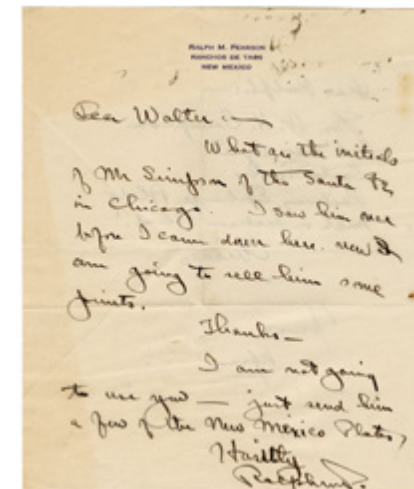 RALPH M. PEARSON
RANCHOS DE TAOS
NEW MEXICO
Dear Walter:—
What are the initials
of Mr Simpson of the Santa Fe
in Chicago. I saw him once
before I came down here. now I
am going to sell him some
prints.
Thanks—
I am not going
to use you — just send him
a few of the New Mexico Plates,
Hastily
Ralph M. P.